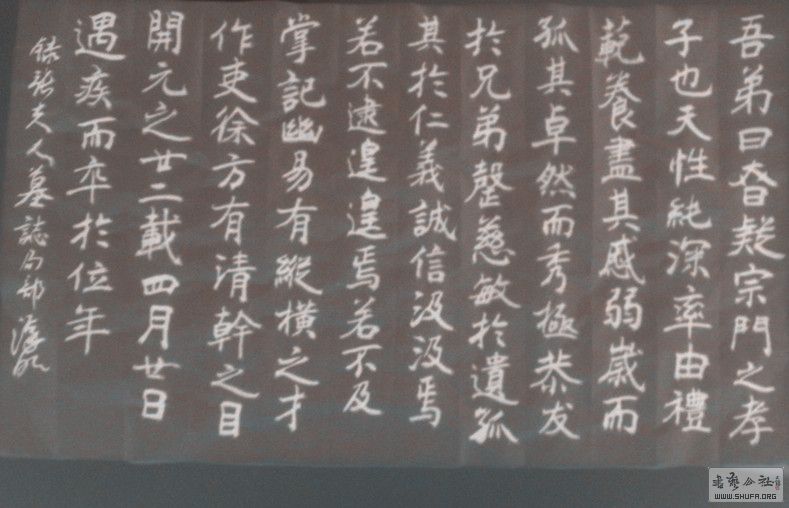 吾弟曰昏疑宗門之孝
子也天性純深率由禮
範養盡其慼弱嵗而
孤其卓然而秀極恭友
於兄弟罄慈敏於遺孤
其於仁義誠信汲汲焉
若不逮遑遑焉若不及
掌記幽易有縱橫之才
作吏徐方有清幹之目
開元之廿二載四月廿日
遇疾而卒於位年
錄張夫人墓誌局部
書藝公社
WWW.SHUFA.ORG